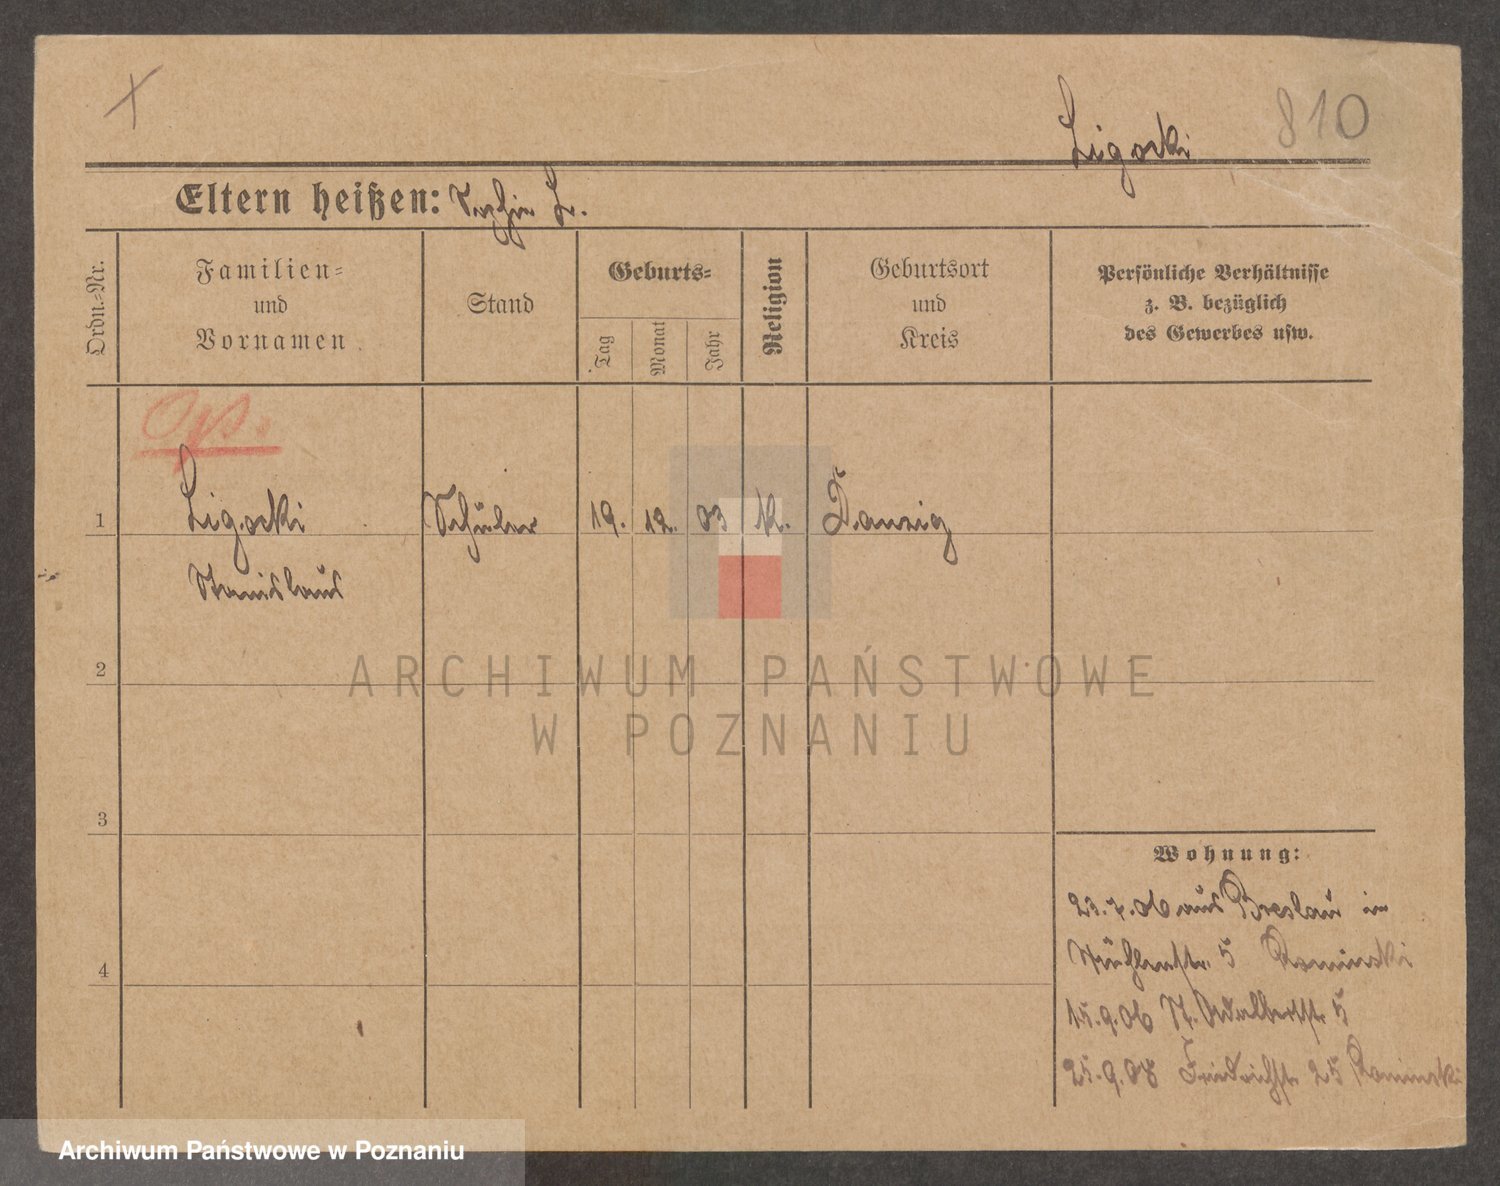 Ligocki 810
Eltern heißen: Sophie L.
Ordn.-Nr.
Familien-
und
Vornamen
Stand
Geburts-
Tag
Monat
Jahr
Religion
Geburtsort
und
Kreis
Persönliche Verhältnisse
z. B. bezüglich
des Gewerbes usw.
1 Ligocki Schüler 19. 12. 03 k. Danzig
Stanislaus
2
3
4
Wohnung:
23.7.06 aus Breslau in
Mühlenstr. 5 Kaminski
15.9.06 St. Adalbertstr. 5
25.9.08 Friedrichstr. 25 Kaminski
ARCHIWUM PAŃSTWOWE
W POZNANIU
Archiwum Państwowe w Poznaniu